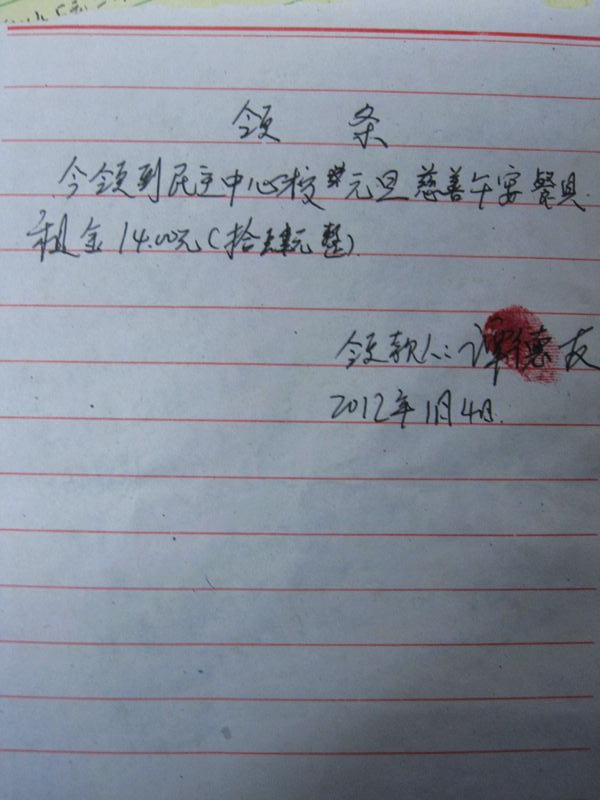 领 条
今领到民主中心校元旦慈善午宴餐具
租金14.00元(拾肆元整)
领款人:谭德友
2012年1月4日.